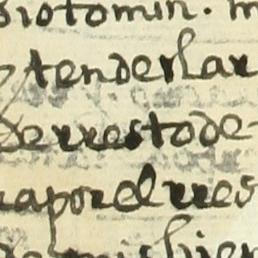 siotomin. m
tenderlar
derrestode
raporelrres